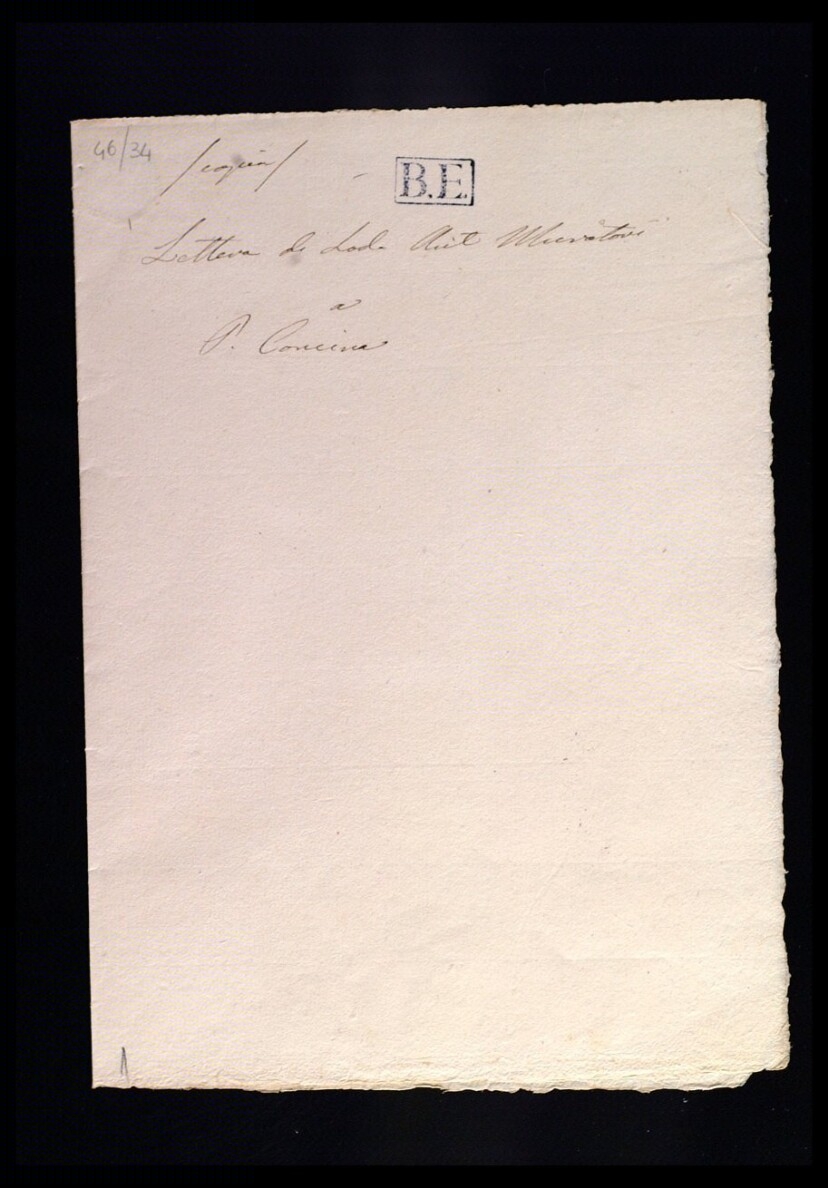 46/34
/copia/
B.E.
Lettera di Lod. Ant Muratori
a
P. Concina
1